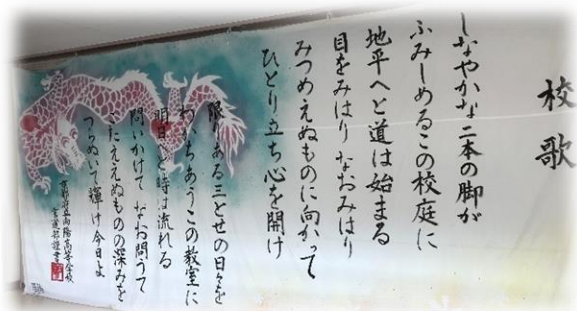 校歌
しなやかな二本の脚が
ふみしめるこの校庭に
地平へと道は始まる
目をみはりなおみはり
みつめえぬものに向かって
ひとり立ち心を開け
限りある三とせの日々を
わかちあうこの教室に
明日へと時は流れる
問いかけてなお問うて
こたええぬものの深みを
つらぬいて輝け今日よ
京都府立向陽高等学校
書道部謹書